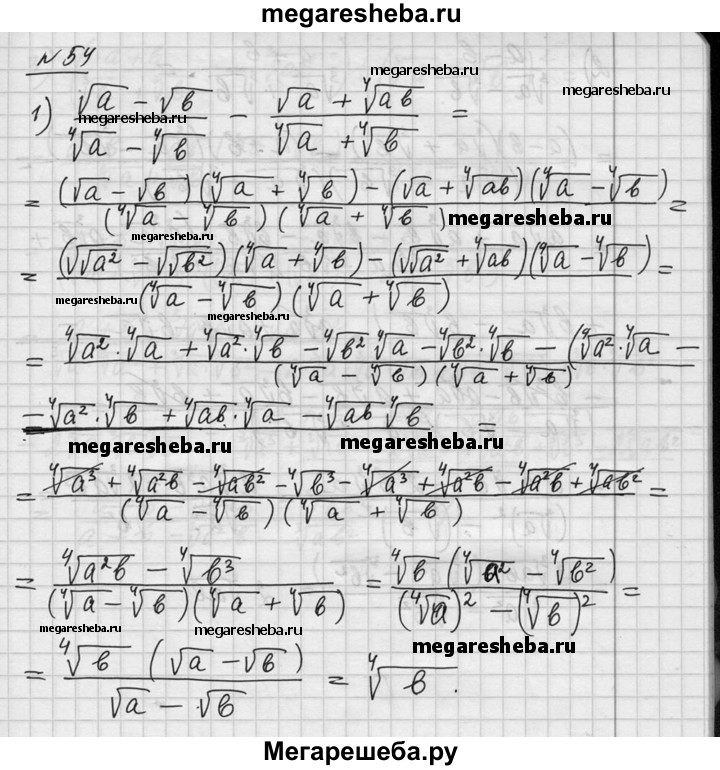 megaresheba.ru
№ 54
megaresheba.ru
megaresheba.ru
1) (√a − √b)/(⁴√a − ⁴√b) − (√a + ⁴√ab)/(⁴√a + ⁴√b) =
megaresheba.ru
= ((√a − √b)(⁴√a + ⁴√b) − (√a + ⁴√ab)(⁴√a − ⁴√b))/((⁴√a − ⁴√b)(⁴√a + ⁴√b)) =
megaresheba.ru
megaresheba.ru
= ((√√a² − √√b²)(⁴√a + ⁴√b) − (√√a² + ⁴√ab)(⁴√a − ⁴√b))/((⁴√a − ⁴√b)(⁴√a + ⁴√b)) =
megaresheba.ru
megaresheba.ru
megaresheba.ru
= (⁴√a² · ⁴√a + ⁴√a² · ⁴√b − ⁴√b² ⁴√a − ⁴√b² · ⁴√b − (⁴√a² · ⁴√a −
(⁴√a − ⁴√b)(⁴√a + ⁴√b)
− ⁴√a² · ⁴√b + ⁴√ab · ⁴√a − ⁴√ab ⁴√b =
megaresheba.ru
megaresheba.ru
= (⁴√a³ + ⁴√a²b − ⁴√ab² − ⁴√b³ − ⁴√a³ + ⁴√a²b − ⁴√a²b + ⁴√ab²)/((⁴√a − ⁴√b)(⁴√a + ⁴√b)) =
= (⁴√a²b − ⁴√b³)/((⁴√a − ⁴√b)(⁴√a + ⁴√b)) = (⁴√b (⁴√a² − ⁴√b²))/((⁴√a)² − (⁴√b)²) =
megaresheba.ru
megaresheba.ru
megaresheba.ru
= (⁴√b (√a − √b))/(√a − √b) = ⁴√b.
Мегарешеба.ру